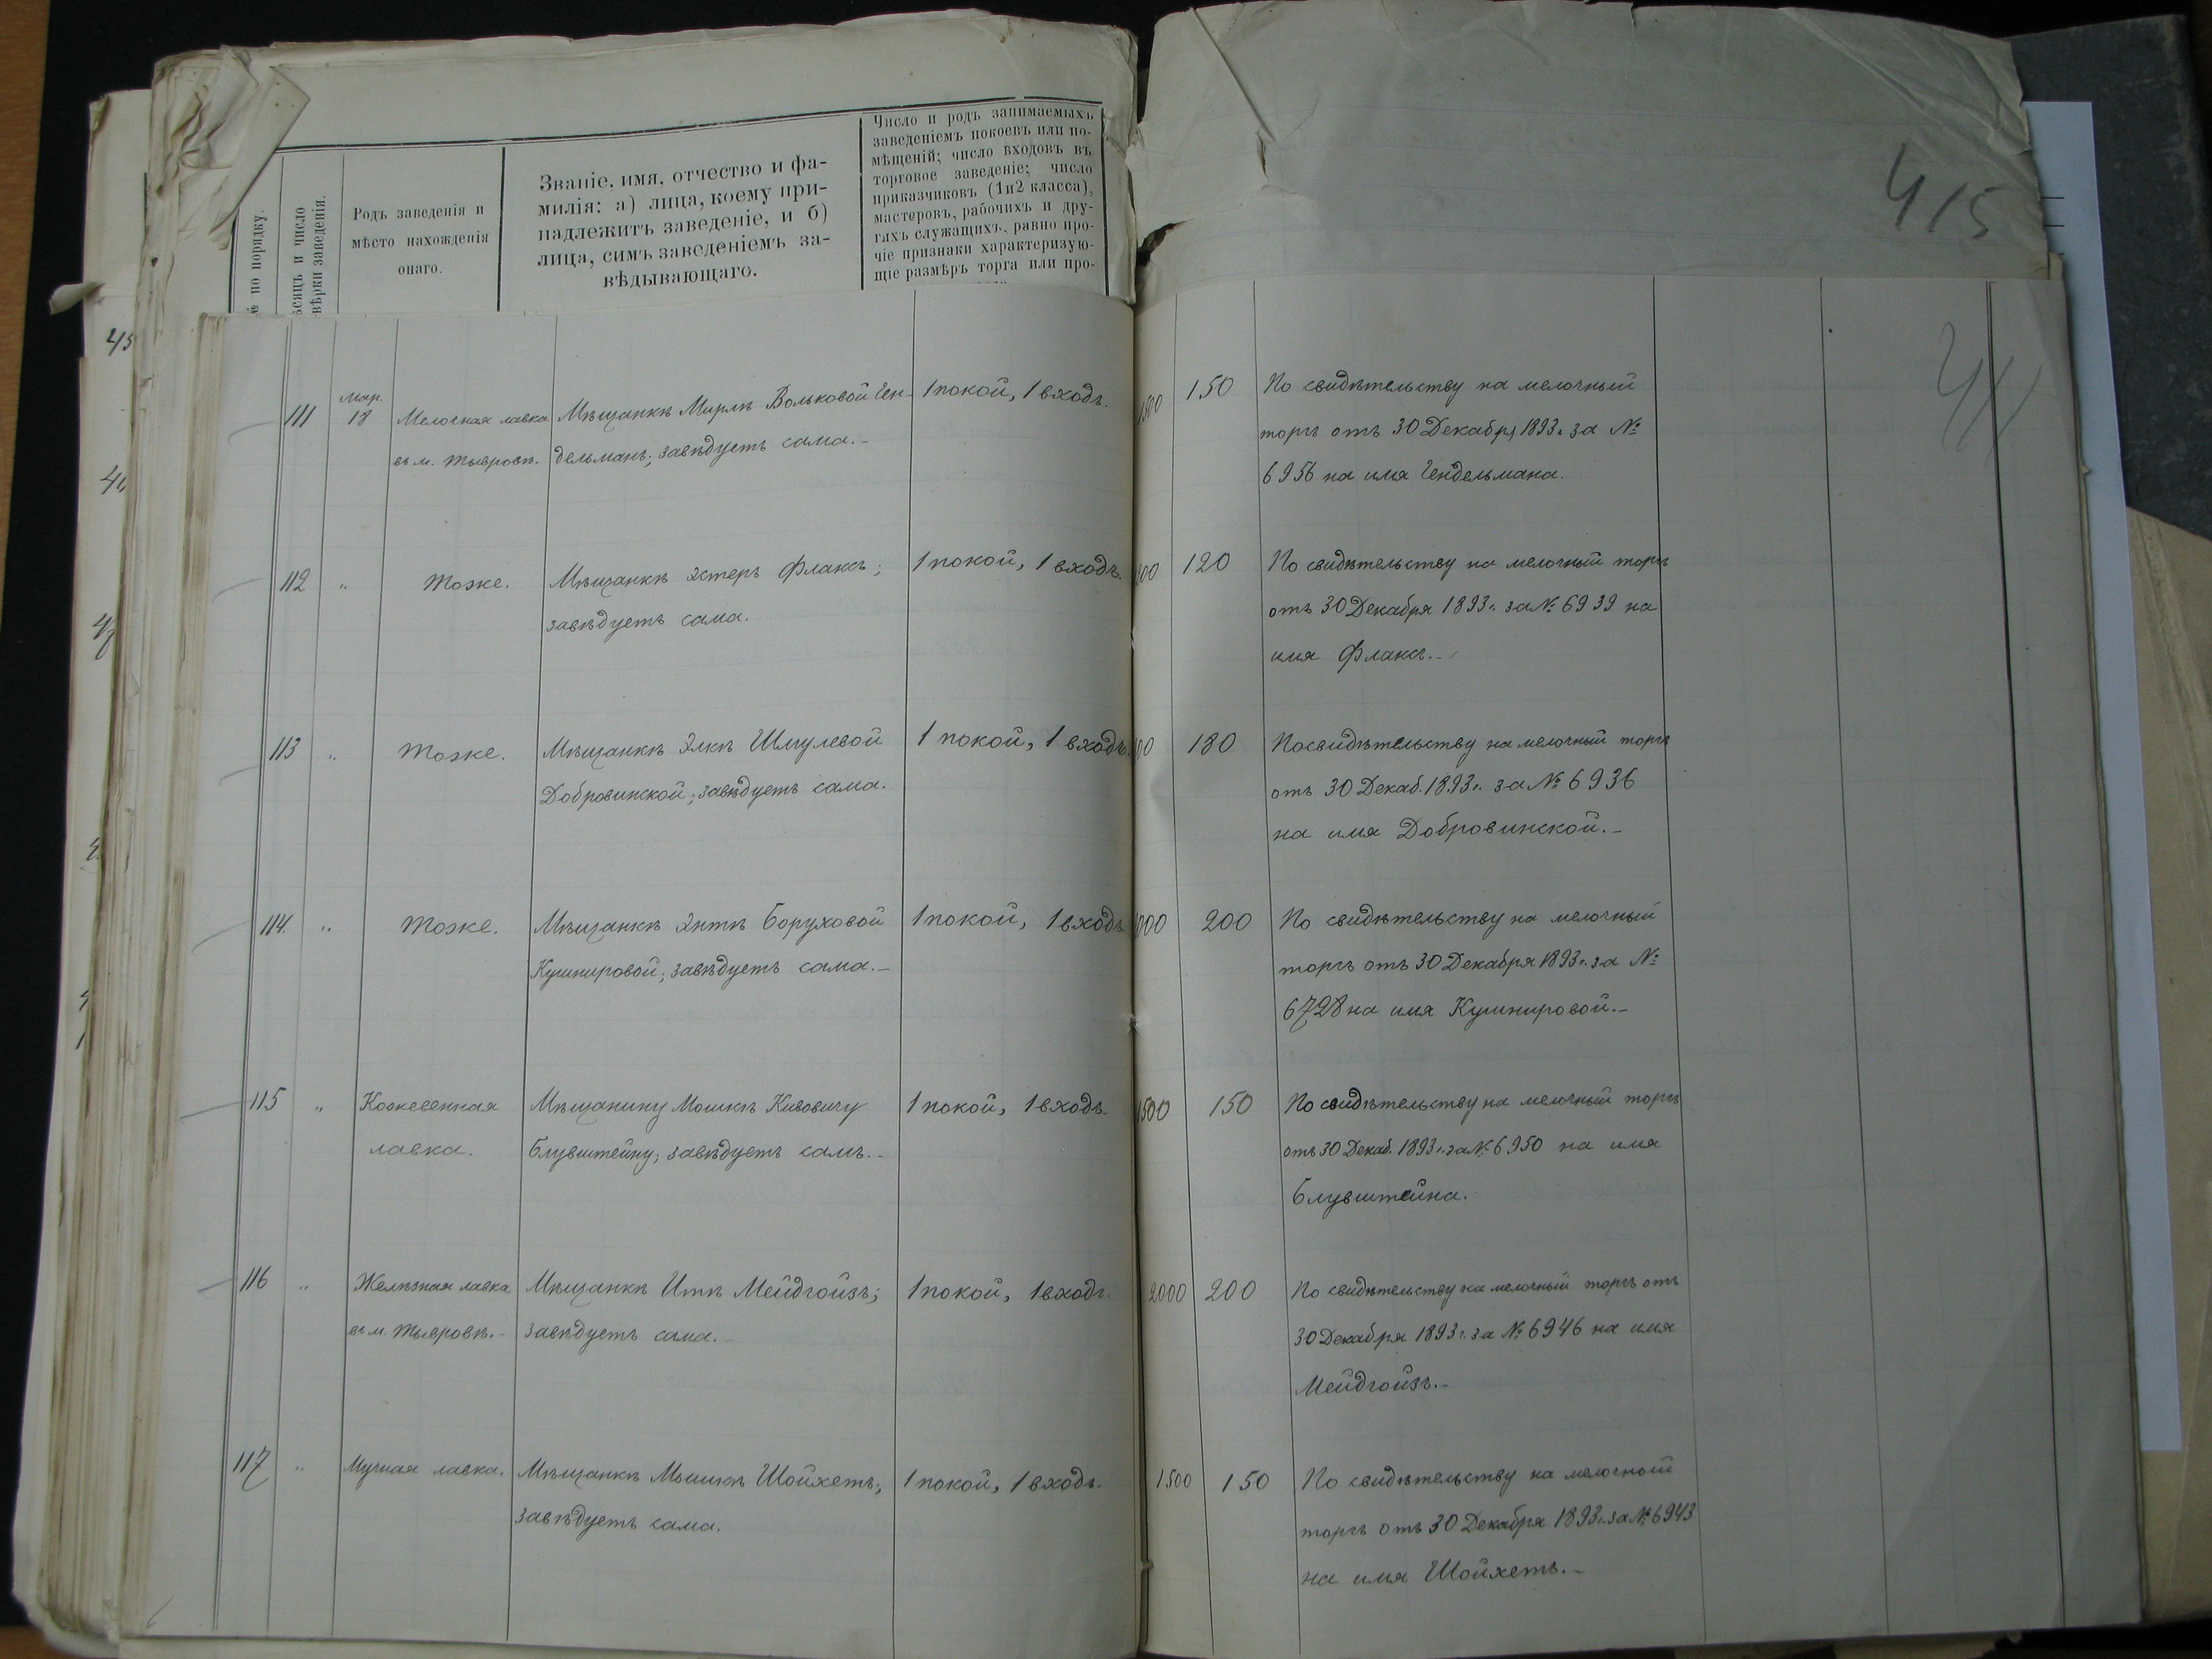 415
411
№ по порядку.
Родъ заведенія и
мѣсто нахожденія
онаго.
Званіе, имя, отчество и фа-
милія: а) лица, коему при-
надлежитъ заведеніе, и б)
лица, симъ заведеніемъ за-
вѣдывающаго.
Число и родъ занимаемыхъ
заведеніемъ покоевъ или по-
мѣщеній; число входовъ въ
торговое заведеніе; число
приказчиковъ (1 и 2 класса),
мастеровъ, рабочихъ и дру-
гихъ служащихъ, равно про-
чіе признаки характеризую-
щіе размѣръ торга или про-
111 Мар. 18 Мелочная лавка
въ м. Тывровѣ.
Мѣщанкѣ Мирлѣ Вольковой Ген-
дельманъ; завѣдуетъ сама.-
1 покой, 1 входъ.
1500 150 По свидѣтельству на мелочный
торгъ отъ 30 Декабря 1893 г. за №
6956 на имя Гендельмана.
112 " Тоже.
Мѣщанкѣ Эстеръ Флаксъ;
завѣдуетъ сама.
1 покой, 1 входъ.
120 По свидѣтельству на мелочный торгъ
отъ 30 Декабря 1893 г. за № 6939 на
имя Флаксъ.-
113 " Тоже.
Мѣщанкѣ Элкѣ Шмулевой
Добровинской; завѣдуетъ сама.
1 покой, 1 входъ.
180 По свидѣтельству на мелочный торгъ
отъ 30 Декаб. 1893 г. за № 6936
на имя Добровинской.-
114. " Тоже.
Мѣщанкѣ Энтѣ Боруховой
Кушнировой; завѣдуетъ сама.-
1 покой, 1 входъ.
200 По свидѣтельству на мелочный
торгъ отъ 30 Декабря 1893 г. за №
6728 на имя Кушнировой.-
115 " Кожевенная
лавка.
Мѣщанину Мошкѣ Кивовичу
Блувштейну; завѣдуетъ самъ.-
1 покой, 1 входъ.
1500 150 По свидѣтельству на мелочный торгъ
отъ 30 Декаб. 1893 г. за № 6950 на имя
Блувштейна.
116 " Желѣзная лавка
въ м. Тывровѣ.-
Мѣщанкѣ Итѣ Мейдгойзъ;
завѣдуетъ сама.-
1 покой, 1 входъ.
2000 200 По свидѣтельству на мелочный торгъ отъ
30 Декабря 1893 г. за № 6946 на имя
Мейдгойзъ.-
117 " Мучная лавка.
Мѣщанкѣ Шойхетъ;
завѣдуетъ сама.
1 покой, 1 входъ.
1500 150 По свидѣтельству на мелочной
торгъ отъ 30 Декабря 1893 г. за № 6943
на имя Шойхетъ.-